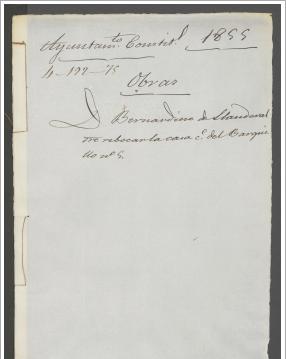 Ayuntam.to Constit.l 1855
4-199-75
Obras
D. Bernardino de Standoval
sre rebocar la casa c.e del Barqui
llo nº 5.